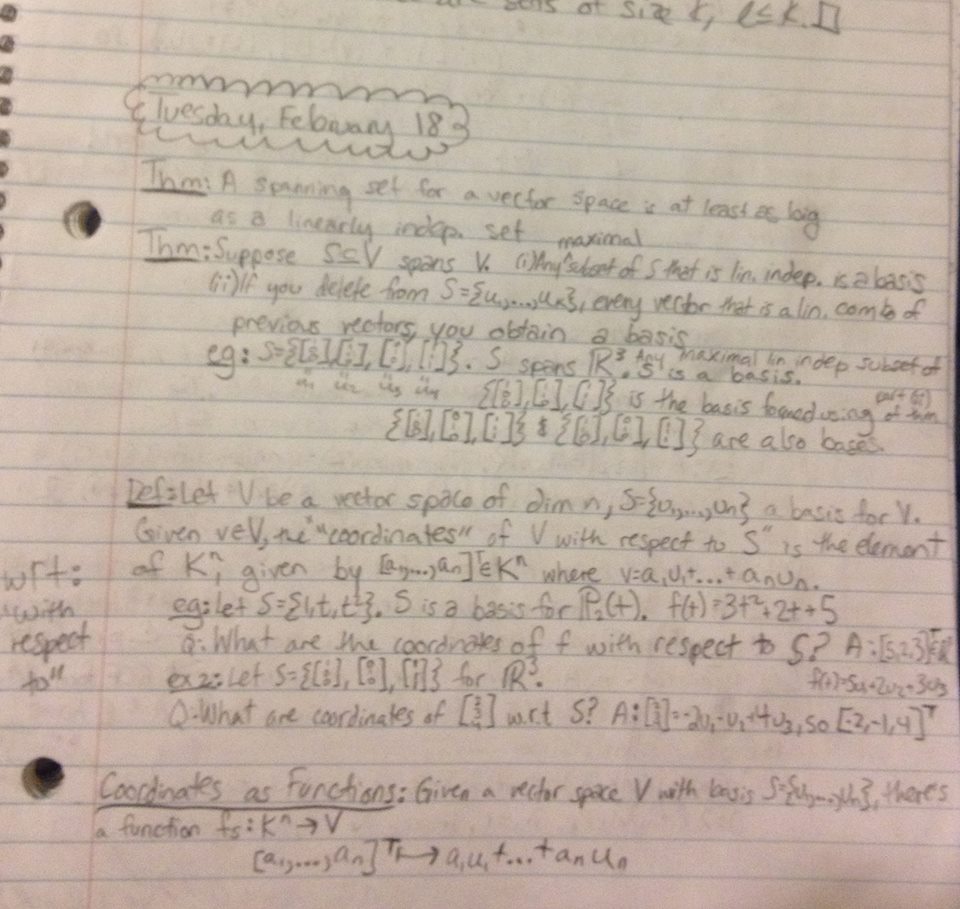 sets of size k, l ≤ k. □
Tuesday, February 18
Thm: A spanning set for a vector space is at least as big
as a linearly indep. set
Thm: Suppose S⊆V spans V. (i) Any ^maximal subset of S that is lin. indep. is a basis
(ii) If you delete from S={u₁,...,uₙ}, every vector that is a lin. comb of
previous vectors, you obtain a basis
eg: S={ }. S spans ℝ³. Any maximal lin indep subset of
S is a basis.
u₁ u₂ u₃ u₄
{ } is the basis formed using part (ii) of thm
{ } & { } are also bases.
Def: Let V be a vector space of dim n, S={u₁,...,uₙ} a basis for V.
Given v∈V, the "coordinates" of V with respect to S" is the element
of Kⁿ, given by [a₁,...,aₙ]ᵀ∈Kⁿ where v=a₁u₁+...+aₙuₙ.
wrt:
"with
respect
to"
eg: let S={1,t,t²}. S is a basis for ℙ₂(t). f(t)=3t²+2t+5
Q: What are the coordnates of f with respect to S? A: [5,2,3]ᵀ∈ℝ³
f(t)=5u₁+2u₂+3u₃
ex 2: Let S={ } for ℝ³.
Q: What are coordinates of wrt S? A: =-2u₁-u₂+4u₃, so [-2,-1,4]ᵀ
Coordinates as Functions: Given a vector space V with basis S={u₁,...,uₙ}, there's
a function fₛ: Kⁿ → V
[a₁,...,aₙ]ᵀ ↦ a₁u₁+...+aₙuₙ